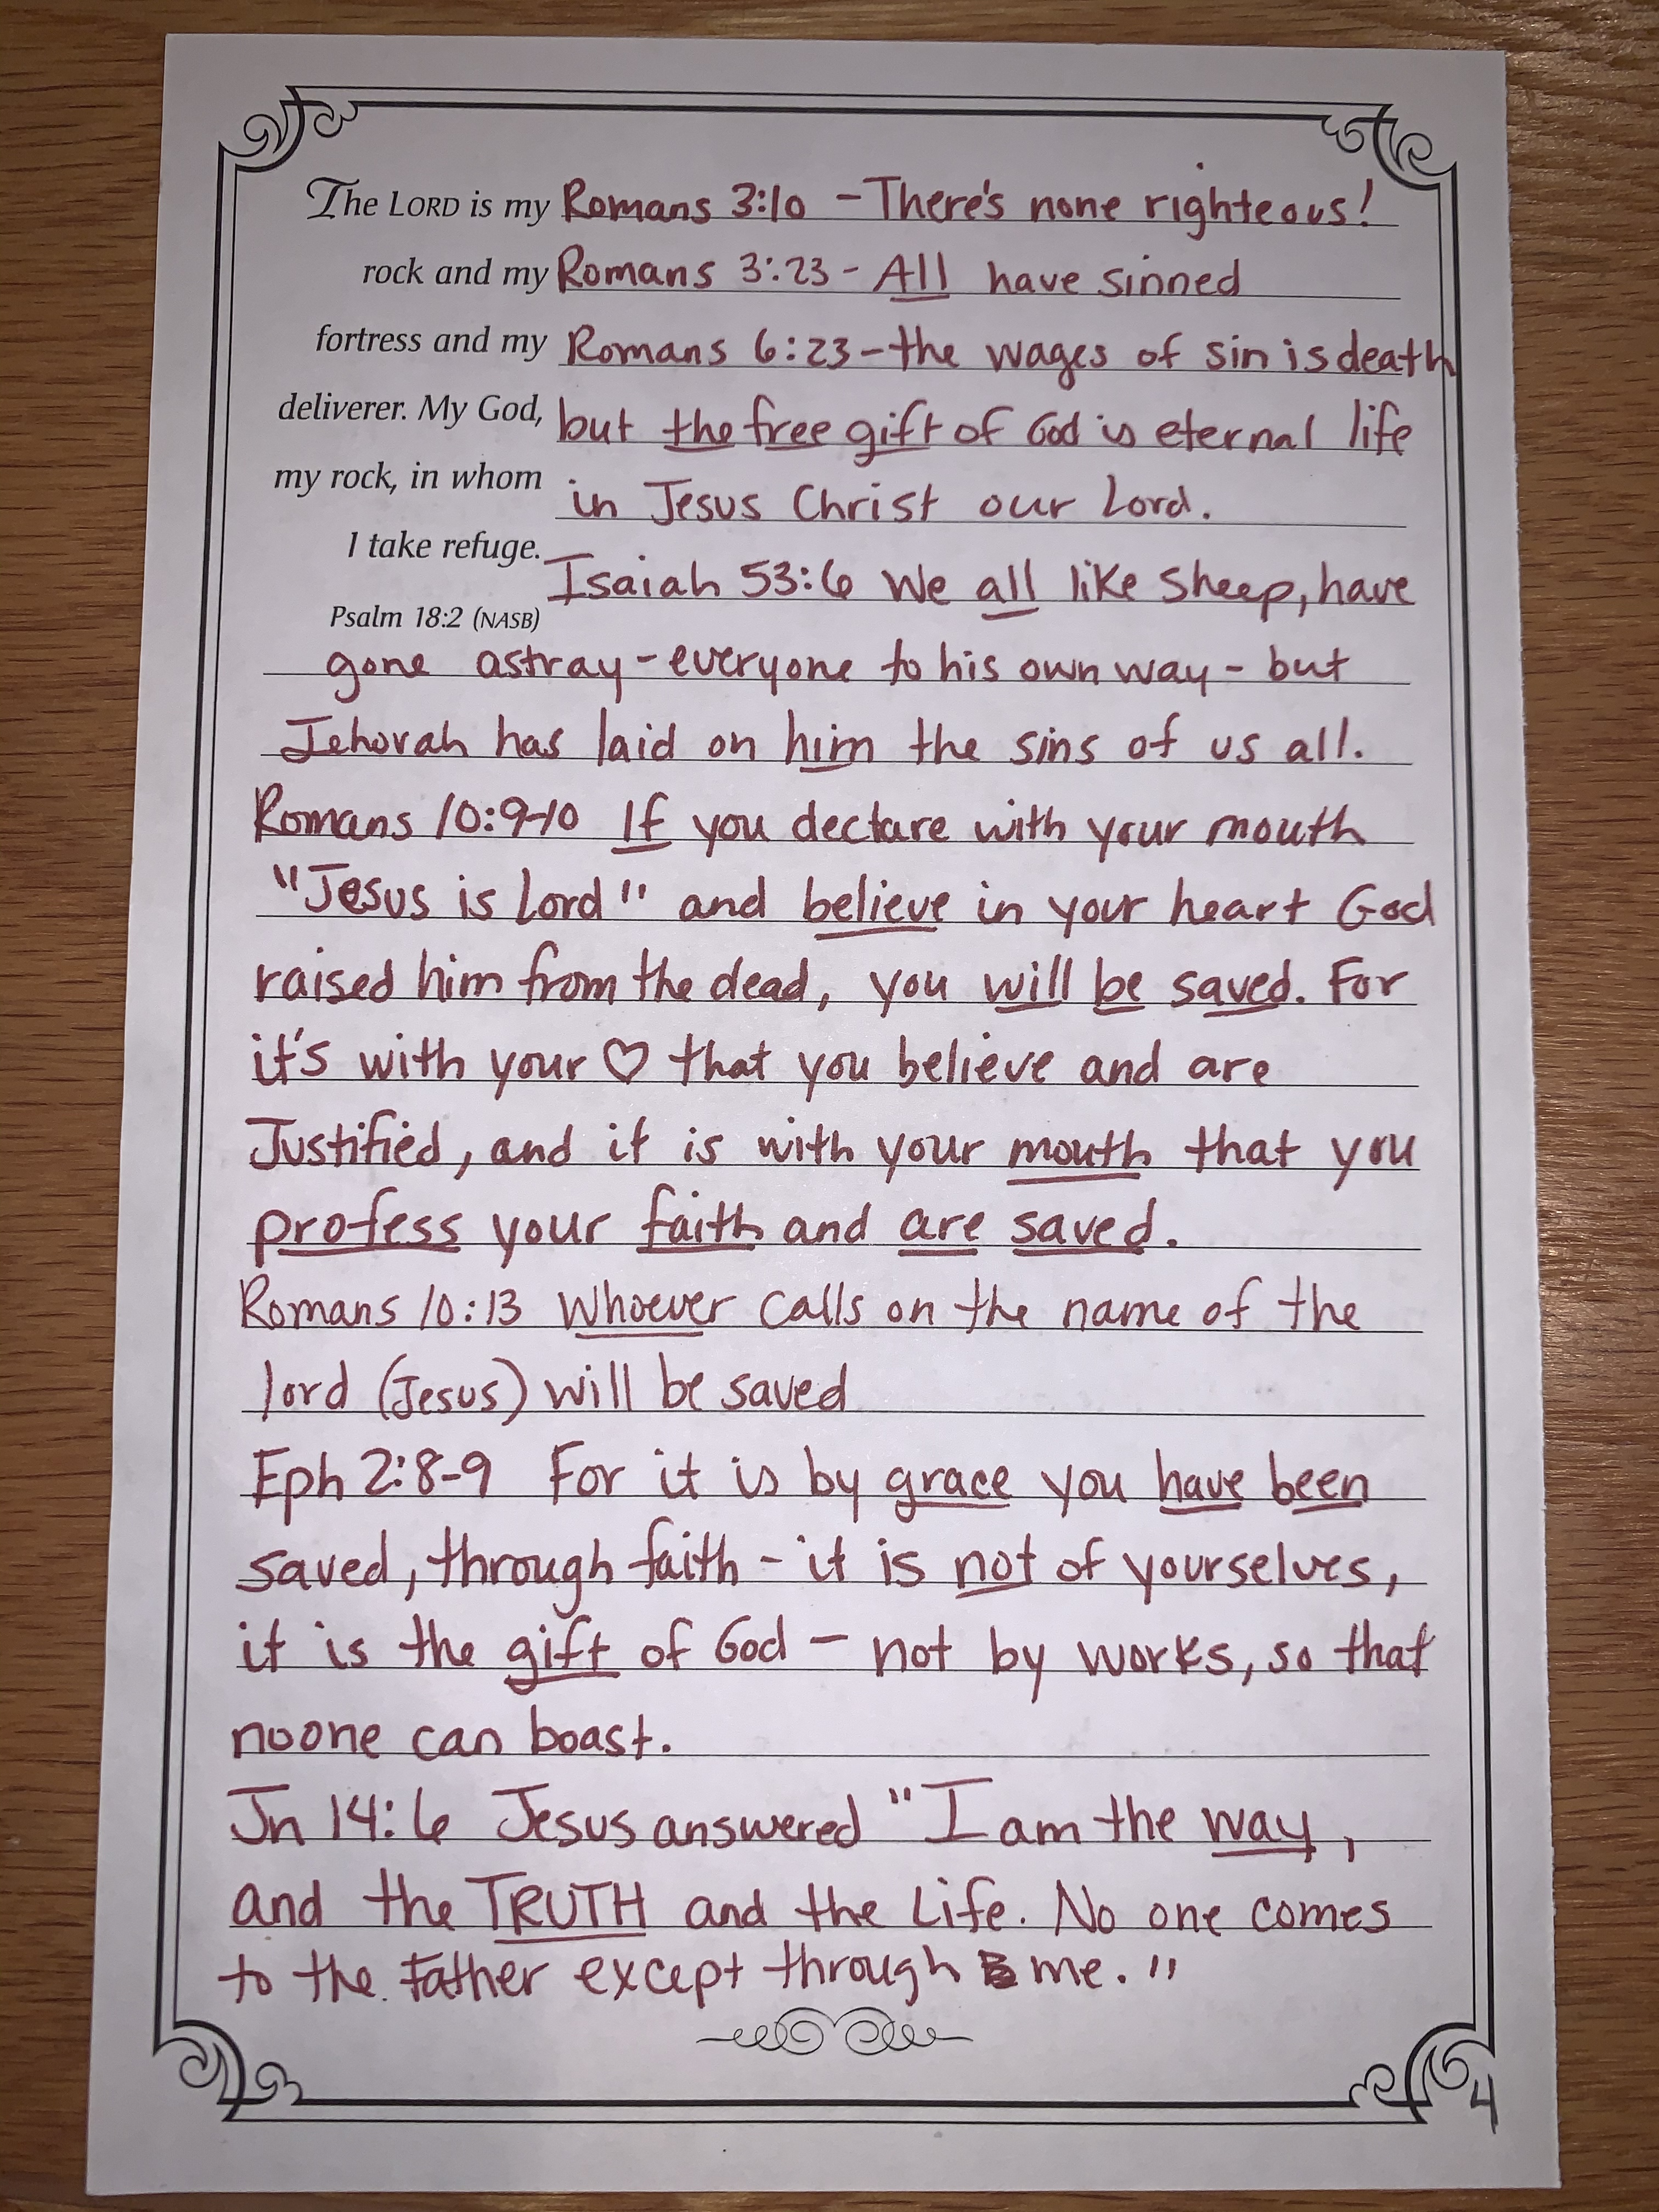 The LORD is my Romans 3:10 - There's none righteous!
rock and my Romans 3:23 - All have sinned
fortress and my Romans 6:23 - the wages of sin is death
deliverer. My God, but the free gift of God is eternal life
my rock, in whom in Jesus Christ our Lord.
I take refuge. Isaiah 53:6 We all like sheep, have
Psalm 18:2 (NASB)
gone astray - everyone to his own way - but
Jehovah has laid on him the sins of us all.
Romans 10:9-10 If you declare with your mouth
"Jesus is Lord" and believe in your heart God
raised him from the dead, you will be saved. For
it's with your ♡ that you believe and are
Justified, and it is with your mouth that you
profess your faith and are saved.
Romans 10:13 Whoever calls on the name of the
lord (Jesus) will be saved
Eph 2:8-9 For it is by grace you have been
saved, through faith - it is not of yourselves,
it is the gift of God - not by works, so that
noone can boast.
Jn 14:6 Jesus answered "I am the way,
and the TRUTH and the Life. No one comes
to the Father except through me."
4